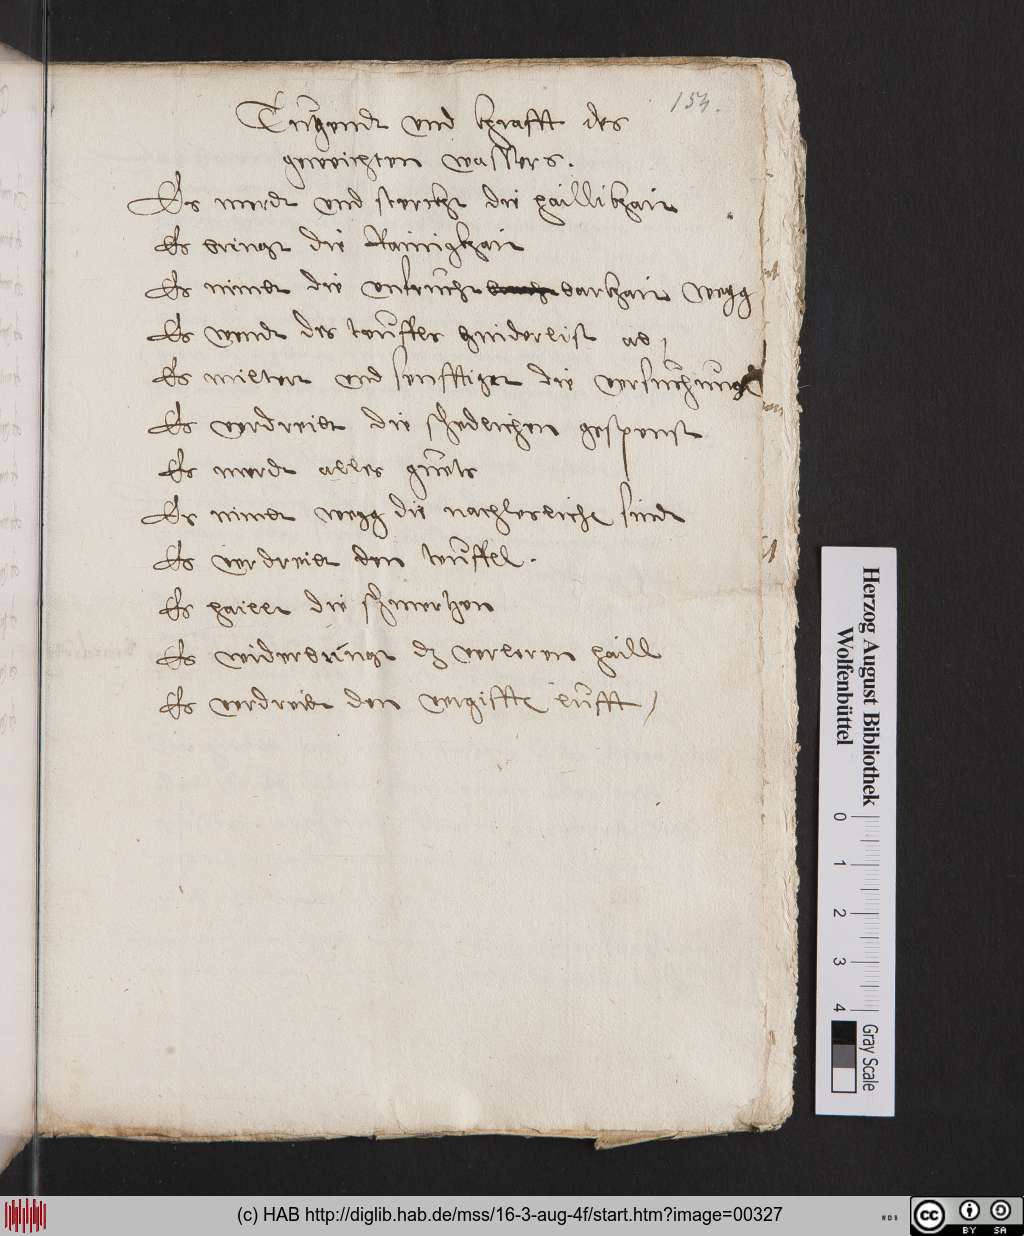 154.
Tugendt vnd khrafft des
geweichten wassers.
Es merdt vnd sterckht die haillikhait
Es bringt die Rainigkhait
Es nimbt die vnfrucht barkhait wegg
Es wendt des teuffls hinderlist ab /
Es miltert vnd senfftiget die versuchung
Es verdreibt die schedlichen gespenst
Es merdt alles guets
Es nimbt wegg die nachlesliche sindt
Es verdreibt den teuffel.
Es haillt die schmertzen
Es widerbringt dz verloren haill
Es verdreibt den vergifften lufft /
Herzog August Bibliothek
Wolfenbüttel
0 1 2 3 4
Gray Scale
(c) HAB http://diglib.hab.de/mss/16-3-aug-4f/start.htm?image=00327
cc BY SA